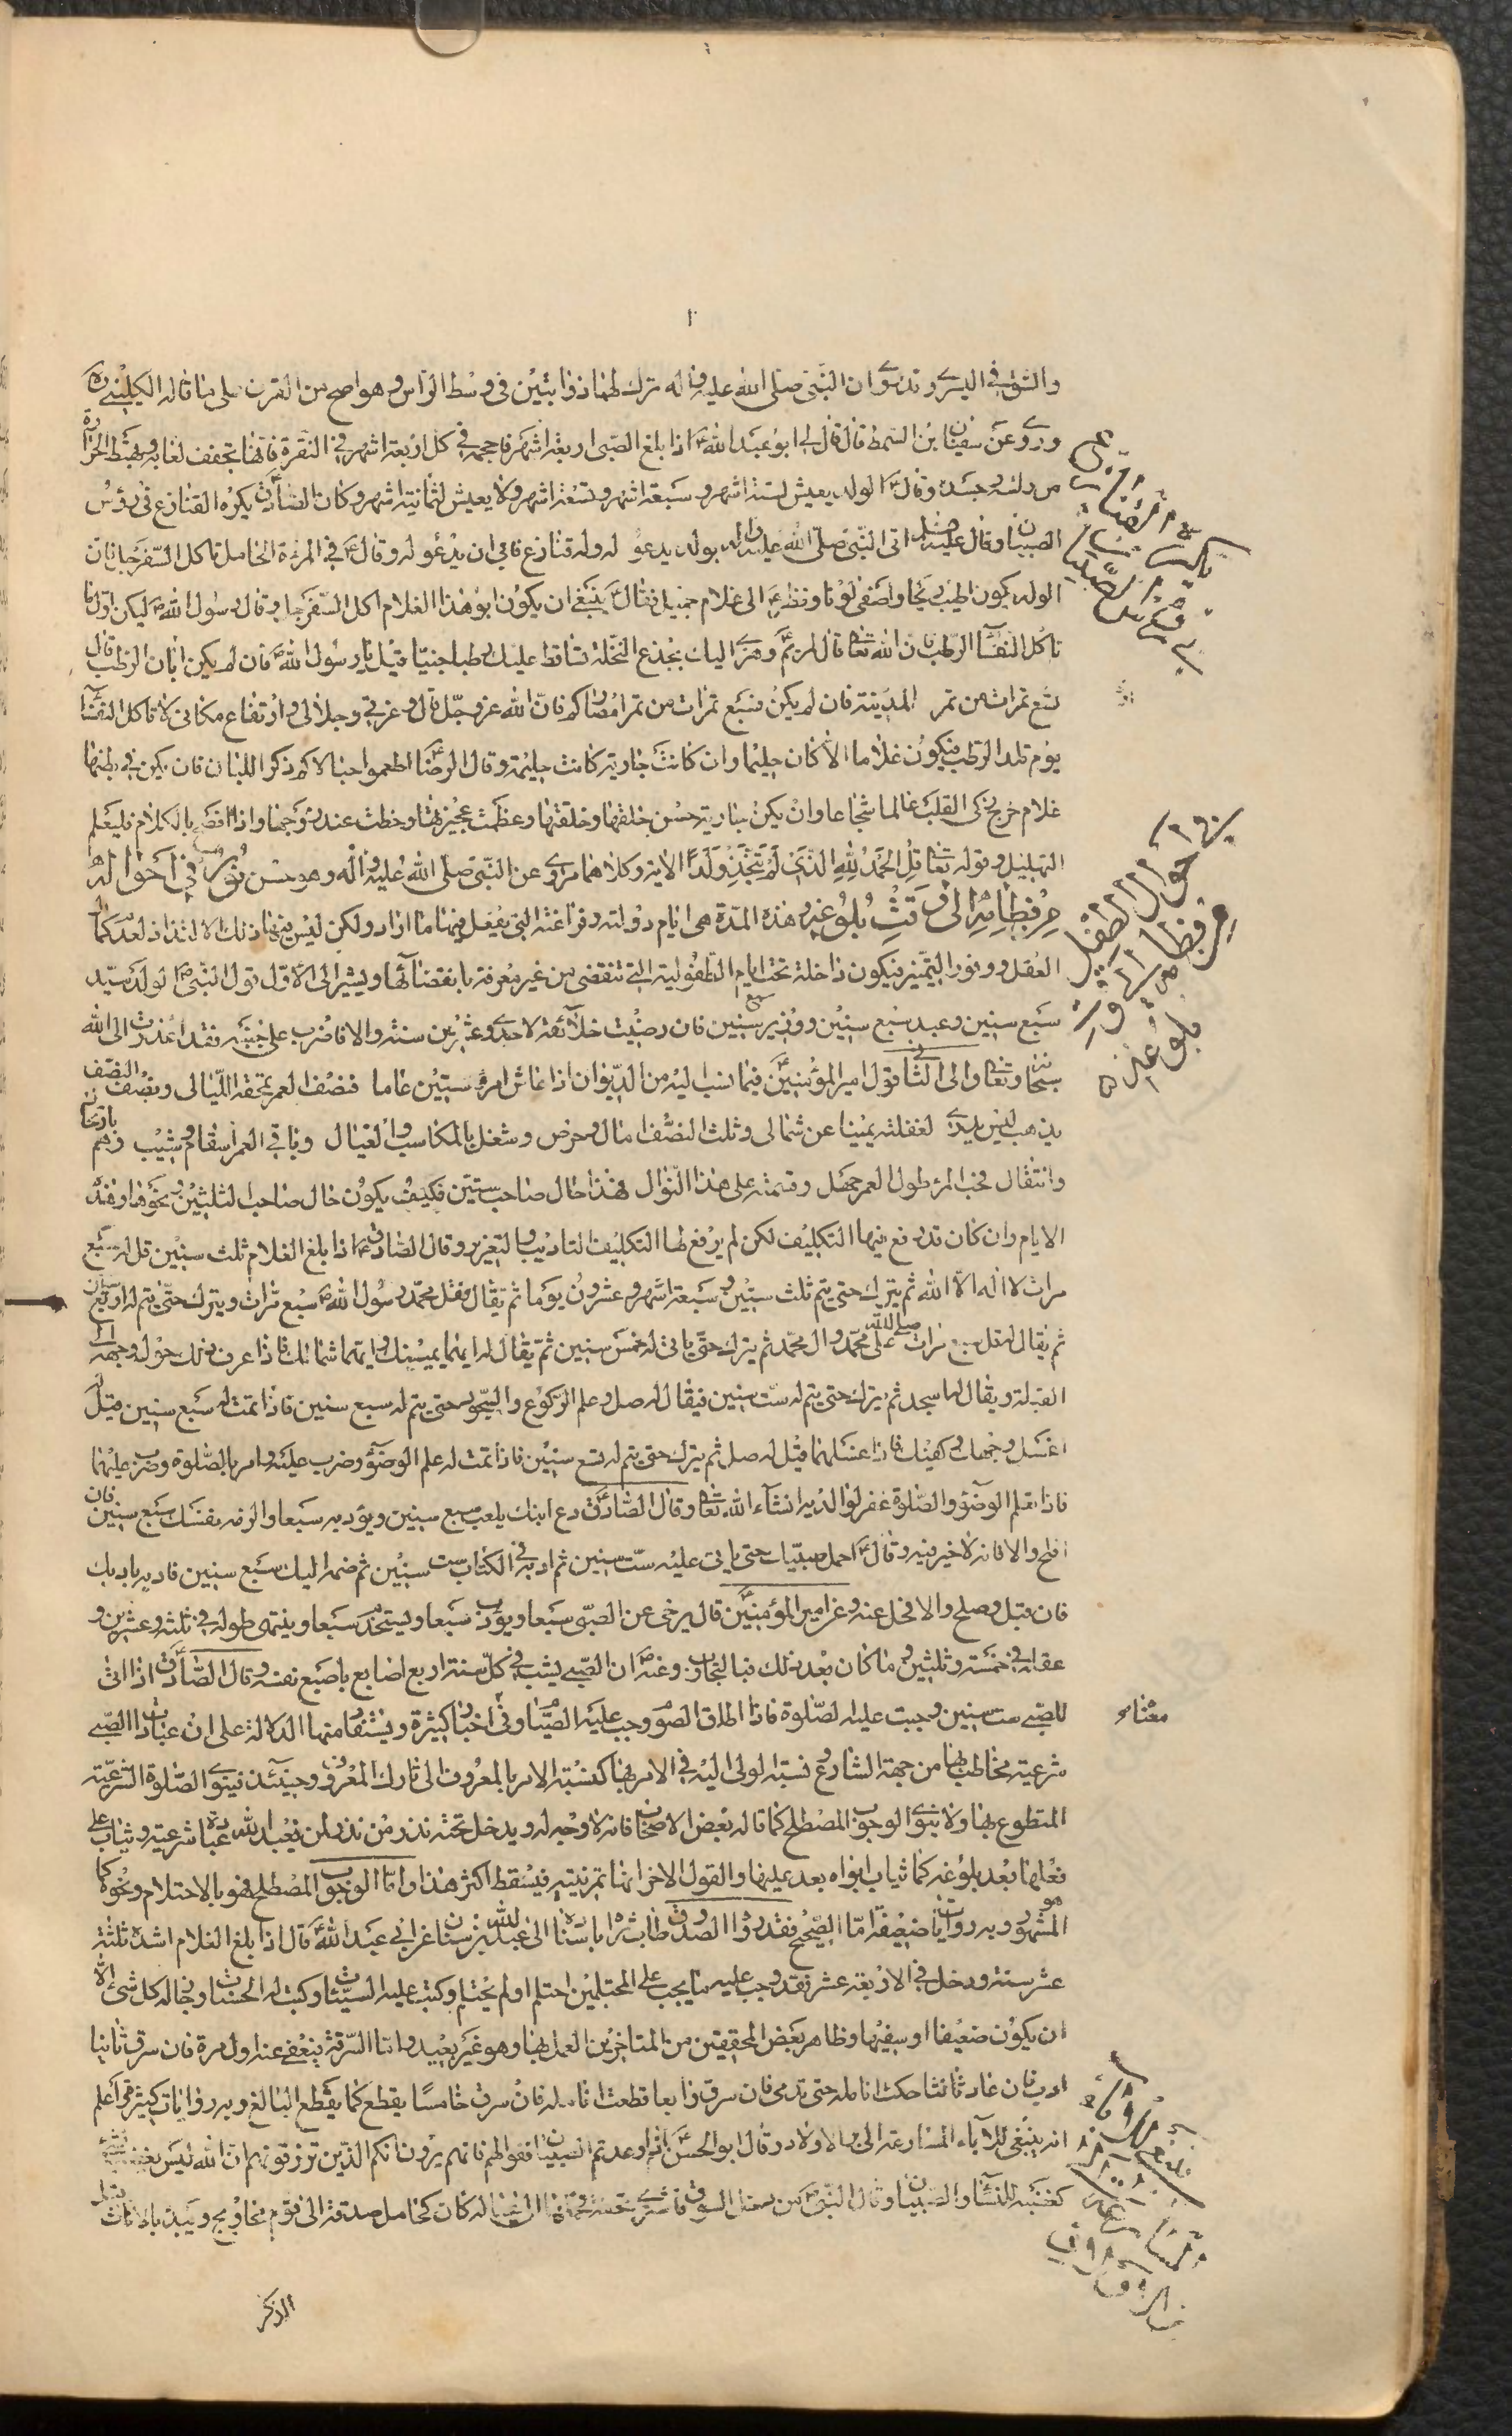 والثقب في اليسرى وقد روى ان النبي صلى الله عليه واله ترك لهما ذؤابتين في وسط الراس وهو اصح من القرن على ما قاله الكليني ره
وروى عن سفيان بن السمط قال قال لي ابو عبد الله ع اذا بلغ الصبى اربعة اشهر فاحجمه في كل اربعة اشهر في النقرة فانها تجفف لعابه وتهبط الحرارة
من راسه وجسده وقال ع الولد يعيش لستة اشهر و سبعة اشهر و تسعة اشهر ولا يعيش لثمانية اشهر وكان الصادق ع يكره القنازع في رؤس
الصبيان وقال ع اتى النبي صلى الله عليه واله بولد يدعو له وله قنازع فابى ان يدعو له وقال ع في المرئة الحامل تاكل السفرجل فان
الولد يكون اطيب ريحا واصفى لونا ونظر ع الى غلام جميل فقال ع ينبغي ان يكون ابو هذا الغلام اكل السفرجل وقال رسول الله ص ليكن اول ما
تاكل النفسآء الرطب فان الله تعا قال لمريم ع وهزى اليك بجذع النخلة تساقط عليك رطبا جنيا قيل يا رسول الله ص فان لم يكن ابان الرطب قال
سبع تمرات من تمر المدينة فان لم يكن فسبع تمرات من تمر امصاركم فان الله عز وجل قال وعزتي وجلالى وارتفاع مكانى لا تاكل النفسآء
يوم تلد الرطب فيكون غلاما الا كان حليما وان كانت جارية كانت حليمة وقال الرضا ع اطعموا حبالاكم ذكر اللبان فان يكن في بطنها
غلام خرج ذكى القلب عالما شجاعا وان يكن جارية حسن خلقها وخلقتها وعظمت عجيزتها وحظت عند زوجها واذا افصح بالكلام فليعلم
التهليل وقوله تعا قل الحمد لله الذى لم يتخذ ولدا الاية وكلاهما مروى عن النبي صلى الله عليه واله وهو حسن نور في احواله
من فطامه الى وقت بلوغه وهذه المدة هى ايام دولته وفراغته التي يفعل فيها ما اراد ولكن ليس فيها ذلك الالتذاذ لعدم كمال
العقل ووفور التميز فيكون داخلة تحت ايام الطفولية التي تنقضى من غير معرفة بانقضائها ويشير الى الاول قول النبي ص الولد سيد
سبع سنين وعبد سبع سنين ووزير سبع سنين فان رضيت خلائقه لاحدى وعشرين سنة والا فاضرب على جنبه فقد اعذرت الى الله
سبحانه وتعا والى الثانى قول امير المؤمنين ع فيما نسب اليه من الديوان اذا عاش امرؤ ستين عاما فنصف العمر تمحقه الليالى ونصف النصف
يذهب ليس يدرى لغفلته يمينا عن شمالى وثلث النصف امال وحرص وشغل بالمكاسب والعيال وباقي العمر اسقام وشيب وهم بارتحال
وانتقال فحب المرء طول العمر جهل وقسمته على هذا النوال فهذا حال صاحب ستين فكيف يكون حال صاحب الثلثين ونحوها وهذه
الايام وان كان قد رفع فيها التكليف لكن لم يرفع لها التكليف التاديب والتعزير وقال الصادق ع اذا بلغ الغلام ثلث سنين قل له سبع
مرات لا اله الا الله ثم يترك حتى يتم ثلث سنين و سبعة اشهر وعشرون يوما ثم يقال له قل محمد رسول الله ص سبع مرات ويترك حتى يتم له اربع سنين
ثم يقال له قل سبع مرات صلى الله على محمد وال محمد ثم يترك حتى ياتى له خمس سنين ثم يقال له ايهما يمينك وايهما شمالك فاذا عرف ذلك حول وجهه الى
القبلة ويقال له اسجد ثم يترك حتى يتم له ست سنين فيقال له صل وعلم الركوع والسجود حتى يتم له سبع سنين فاذا تمت له سبع سنين قيل له
اغسل وجهك وكفيك فاذا غسلهما قيل له صل ثم يترك حتى يتم له تسع سنين فاذا تمت له علم الوضوء وضرب عليه وامر بالصلوة وضرب عليها
فاذا تعلم الوضوء والصلوة غفر لوالديه انشآء الله تعا وقال الصادق ع دع ابنك يلعب سبع سنين ويؤدب سبعا والزمه نفسك سبع سنين فان
افلح والا فانه لا خير فيه وقال ع احمل صبيك حتى ياتى عليه ست سنين ثم ادبه في الكتاب ست سنين ثم ضمه اليك سبع سنين فادبه بادبك
فان قبل وصلح والا فخل عنه وعن امير المؤمنين ع قال يرخى عن الصبى سبعا ويؤدب سبعا ويستخدم سبعا وينتهى طوله في ثلثة وعشرين و
عقله في خمسة وثلثين وما كان بعد ذلك فبالتجارب وعنه ع ان الصبى يشب في كل سنة اربع اصابع باصبع نفسه وقال الصادق ع اذا اتى
للصبى ست سنين وجبت عليه الصلوة فاذا اطاق الصوم وجب عليه الصيام وفي اخبار كثيرة ويستفاد منها الدلالة على ان عبادات الصبى
شرعية مخاطب بها من جهة الشارع ونسبة الولى اليه في الامر بها كنسبة الامر بالمعروف الى تارك المعروف وحينئذ فينوى الصلوة الشرعية
المتطوع بها ولا ينوى الوجوب المصطلح كما قاله بعض الاصحاب فانه لا وجه له ويدخل تحت نذر من نذر لمن يعبد الله عبادة شرعية ويثاب على
فعلها بعد بلوغه كما يثاب ابواه بعد عليها والقول الاخر انها تمرينية فيسقط اكثر هذا واما الوجوب المصطلح فهو بالاحتلام ونحوه كما
هو المشهور وبه روايات ضعيفة اما الصحيح فقد رواه الصدوق طاب ثراه باسناده الى عبد الله بن سنان عن ابي عبد الله ع قال اذا بلغ الغلام اشده ثلثة
عشر سنة ودخل في الاربعة عشر فقد وجب عليه ما يجب على المحتلمين احتلم او لم يحتلم وكتب عليه السيئات وكتب له الحسنات وجاز له كل شئ الا
ان يكون ضعيفا او سفيها وظاهر بعض المحققين من المتاخرين العمل بها وهو غير بعيد واما السرقة فيعفى عنه اول مرة فان سرق ثانيا
ادب فان عاد ثالثا حكت انامله حتى تدمى فان سرق رابعا قطعت انامله فان سرق خامسا يقطع كما يقطع البالغ وبه روايات كثيرة واعلم
انه ينبغى للآباء المسارعة الى الاولاد وقال ابو الحسن ع اذا وعدتم الصبيان ففوا لهم فانهم يرون انكم الذين ترزقونهم ان الله ليس يغضب لشئ
كغضبه للنسآء والصبيان وقال النبي ص من دخل السوق فاشترى تحفة فحملها الى عياله كان كحامل صدقة الى قوم محاويج وليبدء بالاناث قبل
الذكر
في احوال الطفل
من فطامه الى وقت
بلوغه